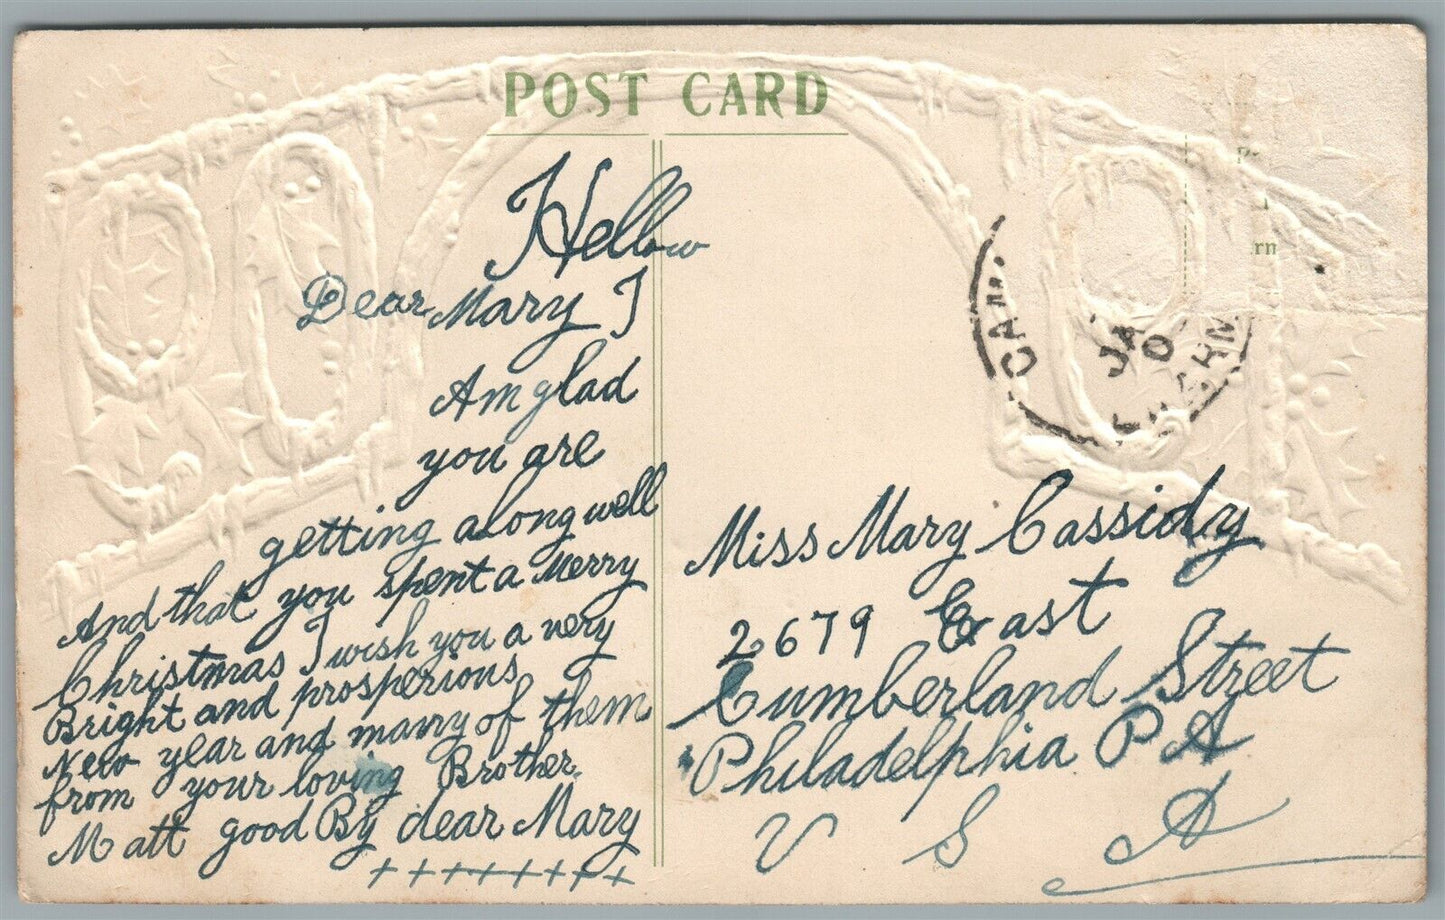 POST CARD
Hellow
Dear Mary I
Am glad
you are
getting along well
And that you spent a Merry
Christmas I wish you a very
Bright and prosperious
New year and many of them
from your loving Brother.
Matt good By dear Mary
+++++++++
Miss Mary Cassidy
2679 East
Cumberland Street
Philadelphia PA
U S A
CA
JA
0